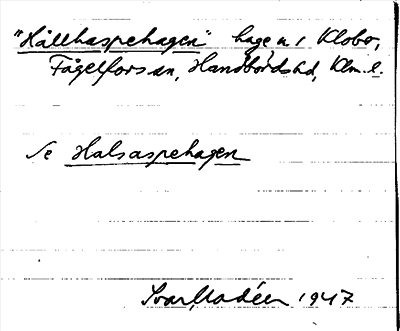 "Hållhaspehagen" hage u i Klobo,
Fågelfors sn, Handbörds hd, Klm. l.
Se Halsaspehagen
Ivar Modéer 1947